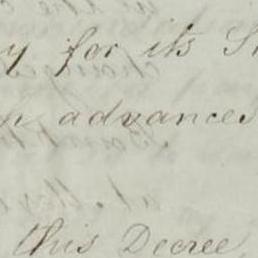 y for its S
h advances
this Decree